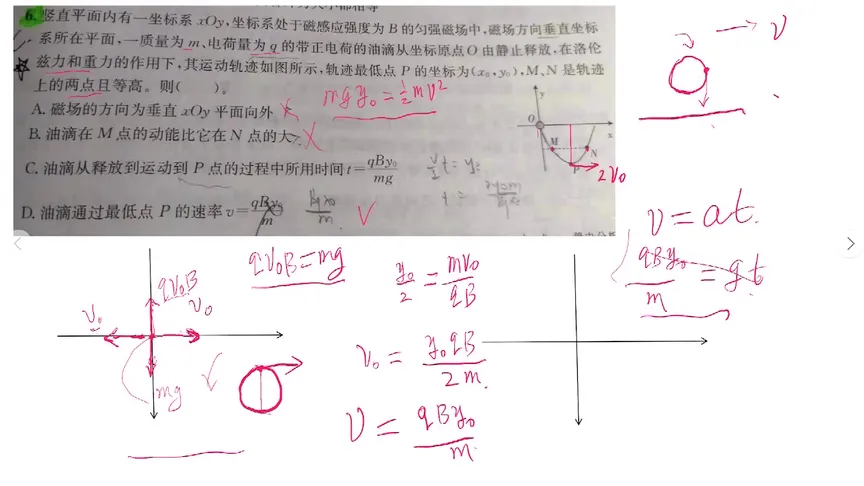 6. 竖直平面内有一坐标系 xOy,坐标系处于磁感应强度为 B 的匀强磁场中,磁场方向垂直坐标
系所在平面,一质量为 m、电荷量为 q 的带正电荷的油滴从坐标原点 O 由静止释放,在洛伦
兹力和重力的作用下,其运动轨迹如图所示,轨迹最低点 P 的坐标为(x₀,y₀),M、N 是轨迹
上的两点且等高。则( )。
mgy₀=½mv²
A. 磁场的方向为垂直 xOy 平面向外
B. 油滴在 M 点的动能比它在 N 点的大
C. 油滴从释放到运动到 P 点的过程中所用时间 t=qBy₀/mg
D. 油滴通过最低点 P 的速率 v=qBy₀/m
y
O
x
M
N
P
2v₀
v
v=at
qBy₀/m=gt
qv₀B
v₀
v₀
mg
qv₀B=mg
y₀/2=mv₀/qB
v₀=y₀qB/2m
v=qBy₀/m